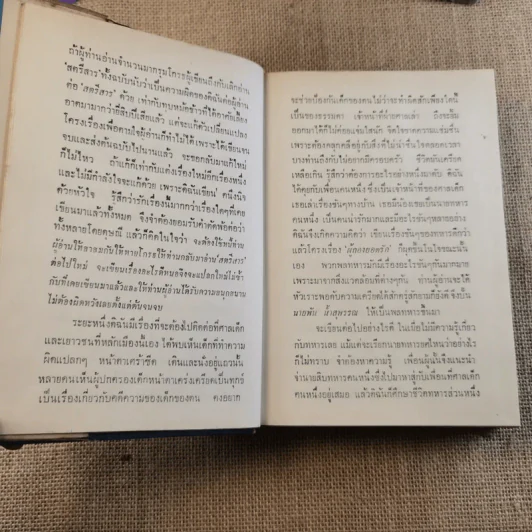 ถ้าผู้ท่านอ่านจำนวนมากรุมโกรธผู้เขียนถึงกับเลิกอ่าน
"สตรีสาร" ทั้งฉบับนับว่าเป็นความผิดของดิฉันต่อผู้อ่าน
ต่อ "สตรีสาร" ด้วย เท่ากับทุบหม้อข้าวที่ได้อาศัยเลี้ยง
อาตมามากว่ายี่สิบปีเสียแล้ว แต่จะแก้ตัวเปลี่ยนแปลง
โครงเรื่องเพื่อตามใจผู้อ่านก็ทำไม่ได้ เพราะได้เขียนจน
จบและส่งต้นฉบับไปนานแล้ว จะขอกลับมาแก้ใหม่
ก็ไม่ไหว ถ้าแก้ก็เท่ากับแต่งเรื่องใหม่อีกเรื่องหนึ่ง
และไม่มีกำลังใจจะแก้ด้วย เพราะดิฉันเขียน คนึงนึก
ด้วยหัวใจ รู้สึกว่ารักเรื่องนี้มากกว่าเรื่องใดๆที่เคย
เขียนมาแล้วทั้งหมด จึงจำต้องยอมรับคำตัดพ้อต่อว่า
ทั้งหลายโดยดุษณี แล้วก็คิดในใจว่า จะต้องใช้หนี้ท่าน
ผู้อ่านให้อาลมกันให้หายโกรธให้ท่านกลับมาอ่าน "สตรีสาร"
ต่อไปใหม่ จะเขียนเรื่องอะไรดีหนอจึงจะแปลกใหม่ไม่ซ้ำ
กับที่เคยเขียนมาแล้วและให้ท่านผู้อ่านได้รับความสนุกสนาน
ไม่ต้องผิดหวังเลยตั้งแต่ต้นจนจบ
ระยะหนึ่งดิฉันมีเรื่องที่จะต้องไปติดต่อที่ศาลเด็ก
และเยาวชนที่หลักเมืองเนืองๆ ได้พบเห็นเด็กที่ทำความ
ผิดแปลกๆ หน้าตาเศร้าซีด เดินและนั่งอยู่แถวนั้น
หลายคนเห็นผู้ปกครองเด็กหน้าตาเคร่งเครียดเป็นทุกข์
เป็นเรื่องเกี่ยวกับคดีความของเด็กของตน คงอยาก
จะช่วยป้องกันเด็กของตนไม่ว่าจะทำผิดสักเพียงใดนี้
เป็นของธรรมดา เจ้าหน้าที่ฝ่ายศาลเล่า ถึงจะยิ้ม
ออกมาได้ก็ไม่ค่อยแจ่มใสนัก จิตใจขาดความแช่มชื่น
เพราะต้องคลุกคลีอยู่กับสิ่งที่ไม่น่าชื่นใจตลอดเวลา
บางท่านถึงกับไม่อยากมีครอบครัว ชีวิตมันเครียด
เหลือเกิน รู้สึกว่าต้องการอะไรอย่างหนึ่งมาดับ ดิฉัน
ได้คุยกับเพื่อนคนหนึ่งซึ่งเป็นเจ้าหน้าที่ของศาลเด็ก
เธอเล่าเรื่องขันๆทางบ้าน เธอมีน้องเขยเป็นนายทหาร
คนหนึ่ง เป็นคนน่ารักมากและมีอะไรขันๆหลายอย่าง
ดิฉันจึงเกิดความคิดว่า เขียนเรื่องขันๆเกี่ยวกับทหารดีกว่า
แล้วโครงเรื่อง "ผู้กองยอดรัก" ก็ผุดขึ้นในใจขณะนั้น
เอง พวกพลทหารมักมีเรื่องอะไรขันๆกันมากมาย
เพราะมาจากสิ่งแวดล้อมที่ต่างๆกัน ท่านผู้อ่านจะได้
หัวเราะพอดับความเครียดได้สักครู่สักยามก็ยังดี จึงปั้น
นายพัน น้ำสุพรรณ ให้เป็นพลทหารขึ้นมา
จะเขียนต่อไปอย่างไรดี ในเมื่อไม่มีความรู้เกี่ยว
กับทหารเลย แม้แต่จะเรียกนายทหารยศไหนว่าอย่างไร
ก็ไม่ทราบ จำต้องหาความรู้ เพื่อนผู้นั้นจึงแนะนำ
จ่านายสิบทหารคนหนึ่งซึ่งไปมาหาสู่กับเพื่อนที่ศาลเด็ก
คนหนึ่งอยู่เสมอ แล้วดิฉันก็ศึกษาชีวิตทหารส่วนหนึ่ง